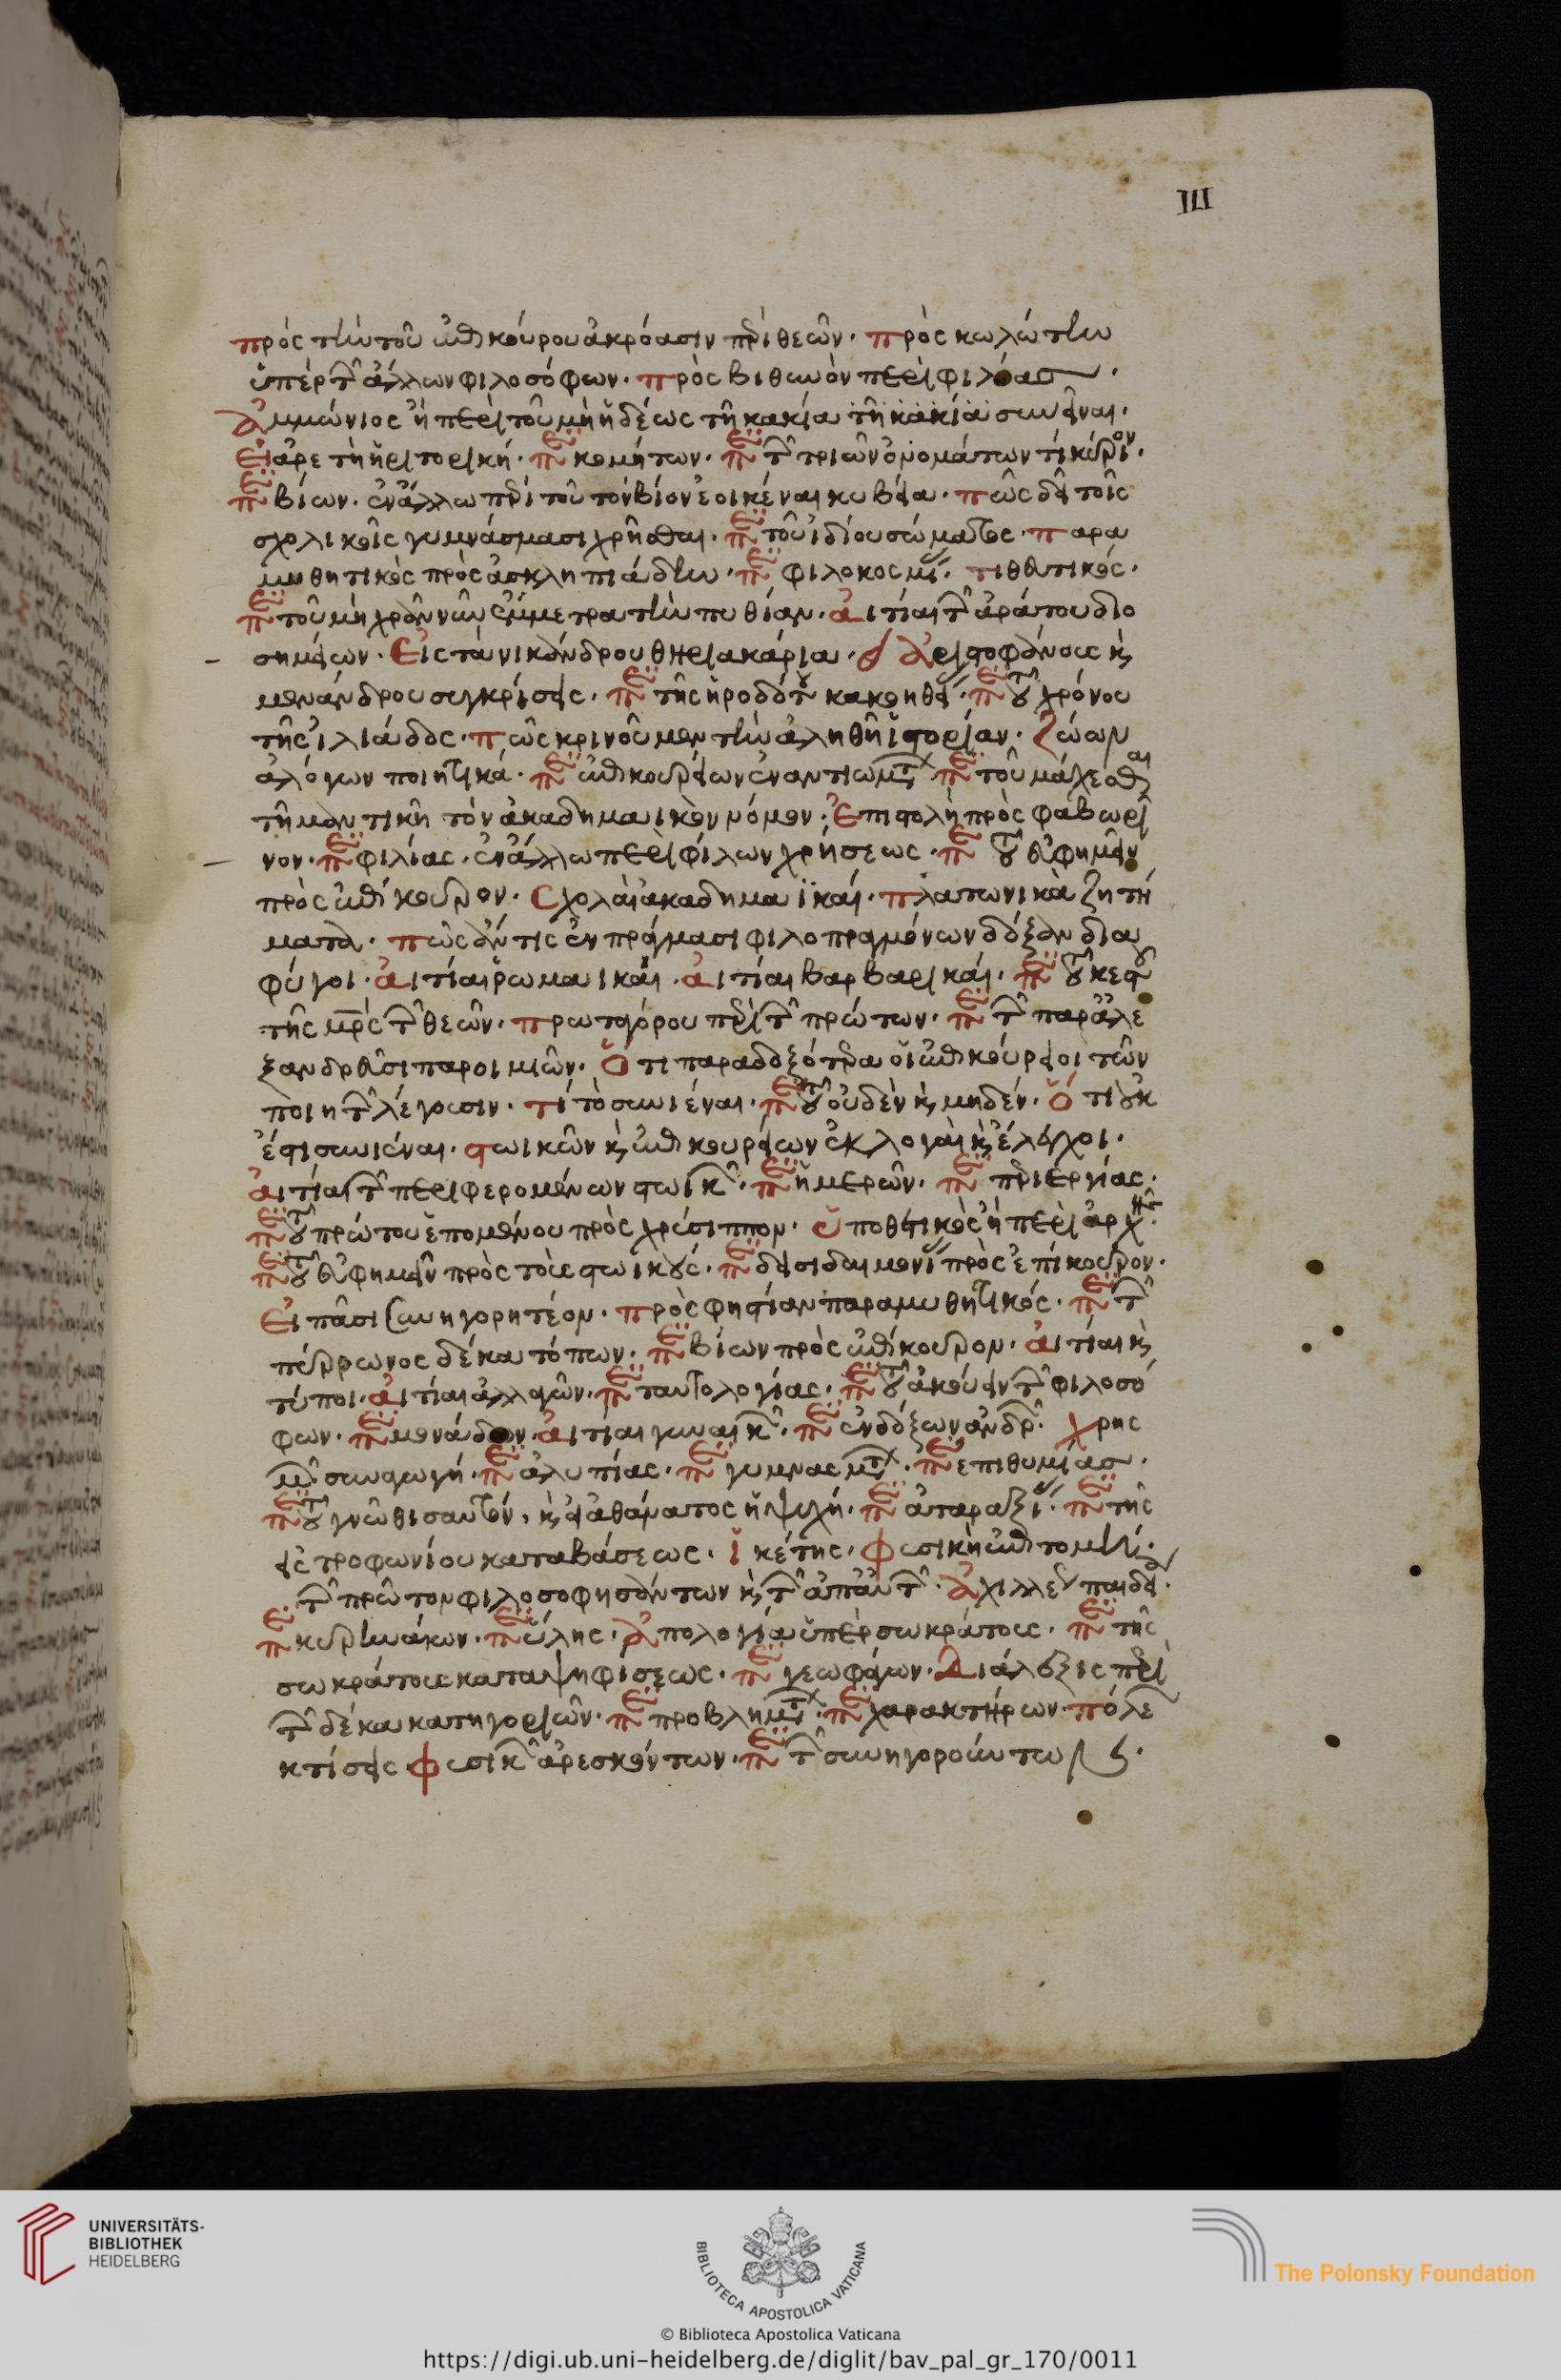 III
πρὸς τὴν τοῦ ἐπικούρου ἀκρόασιν περὶ θεῶν. πρὸς κωλώτην
ὑπὲρ τῶν ἄλλων φιλοσόφων. πρὸς βιθυνὸν περὶ φιλίας.
Ἀμμώνιος ἢ περὶ τοῦ μὴ ἡδέως τῆ κακία τῆ κακία συνεῖναι.
Εἰ ἀρετὴ ἡ ρητορική. περὶ κομήτων. περὶ τῶν τριῶν ὀνομάτων τί κύριον.
περὶ βίων. ἐν ἄλλω περὶ τοῦ τὸν βίον ἐοικέναι κυβεία. πῶς δεῖ τοῖς
σχολικοῖς γυμνάσμασι χρῆσθαι. περὶ τοῦ ἰδίου σώματος. παρα
μυθητικὸς πρὸς ἀσκληπιάδην. περὶ φιλοκοσμίας. τιθθτικός.
περὶ τοῦ μὴ χρᾶν νῦν ἔμμετρα τὴν πυθίαν. αἰτίαι τῶν ἀράτου διο
σημείων. Εἰς τὰ νικάνδρου θηριακά Ἀριστοφάνους καὶ
μενάνδρου συγκρίσεις. περὶ τῆς ἡροδότου κακοηθείας. περὶ τοῦ χρόνου
τῆς ἰλιάδος. πῶς κρινοῦμεν τὴν ἀληθῆ ἱστορίαν. Ζώων
ἀλόγων ποιητικά. περὶ ἐπικουρείων ἐναντιωμάτων. περὶ τοῦ μάχεσθαι
τῆ μαντικῆ τὸν ἀκαδημαικὸν Ἐπιστολὴ πρὸς φαβωρῖ
νον. περὶ φιλίας. ἐν ἄλλω περὶ φίλων χρήσεως. περὶ τοῦ εὐφημεῖν
πρὸς ἐπίκουρον. Σχολαὶ ἀκαδημαϊκαί. πλατωνικὰ ζητή
ματα. πῶς ἄν τις ἐν πράγμασι φιλοπραγμόνων δόξαν δια
φύγοι. αἰτίαι ῥωμαικαί. αἰτίαι βαρβαρικαί. περὶ τοῦ κεστοῦ
τῆς μητρὸς τῶν θεῶν. πρωταγόρου περὶ τῶν πρώτων. περὶ τῶν παρ' ἀλε
ξανδρεῦσι παροιμιῶν. Ὅτι παραδοξότερα οἱ ἐπικούρειοι τῶν
ποιητῶν λέγουσιν. τί τὸ συνιέναι. περὶ τοῦ οὐδὲν καὶ μηδέν. ὅτι οὐκ
ἔστι συνιέναι. στωικῶν καὶ ἐπικουρείων ἐκλογαὶ καὶ ἔλεγχοι.
αἰτίαι τῶν περιφερομένων στωικῶν. περὶ ἡμερῶν. περὶ περιεργίας.
περὶ τοῦ πρώτου ἑπομένου πρὸς χρύσιππον. ὑποθετικὸς ἢ περὶ ἀρχῆς.
περὶ τοῦ εὐφημεῖν πρὸς τοὺς στωικούς. περὶ δεισιδαιμονίας πρὸς ἐπίκουρον.
Εἰ πᾶσι συνηγορητέον. πρὸς φηστίαν παραμυθητικός. περὶ τῶν
πύρρωνος δέκα τόπων. περὶ βίων πρὸς ἐπίκουρον. αἰτίαι καὶ
τόποι. αἰτίαι ἀλλαγῶν. περὶ ταυτολογίας. περὶ τοῦ ἀκούειν τῶν φιλοσό
φων. περὶ μονάδων. αἰτίαι γυναικῶν. περὶ ἐνδόξων ἀνδρῶν. χρησ
μῶν συναγωγή. περὶ ἀλυπίας. περὶ γυμνασμάτων. περὶ ἐπιθυμίας.
περὶ τοῦ γνῶθι σαυτόν, καὶ εἰ ἀθάνατος ἡ ψυχή. περὶ ἀταραξίας. περὶ τῆς
εἰς τροφωνίου καταβάσεως. ἱκέτης. φυσικὴ ἐπιτομή.
τῶν πρῶτον φιλοσοφησάντων καὶ τῶν ἀπ' αὐτῶν. Ἀχιλλέως παιδεία.
περὶ κυρηναίων. περὶ ὕλης. Ἀπολογία ὑπὲρ σωκράτους. περὶ τῆς
σωκράτους καταψηφίσεως. περὶ γεωφάγων. Διάλεξις περὶ
τῶν δέκα κατηγοριῶν. περὶ προβλημάτων. περὶ χαρακτήρων. πόλε
κτίσεις. φυσικῶν ἀρεσκόντων. περὶ τῶν συνηγορούντων.
UNIVERSITÄTS-
BIBLIOTHEK
HEIDELBERG
BIBLIOTECA APOSTOLICA VATICANA
The Polonsky Foundation
© Biblioteca Apostolica Vaticana
https://digi.ub.uni-heidelberg.de/diglit/bav_pal_gr_170/0011